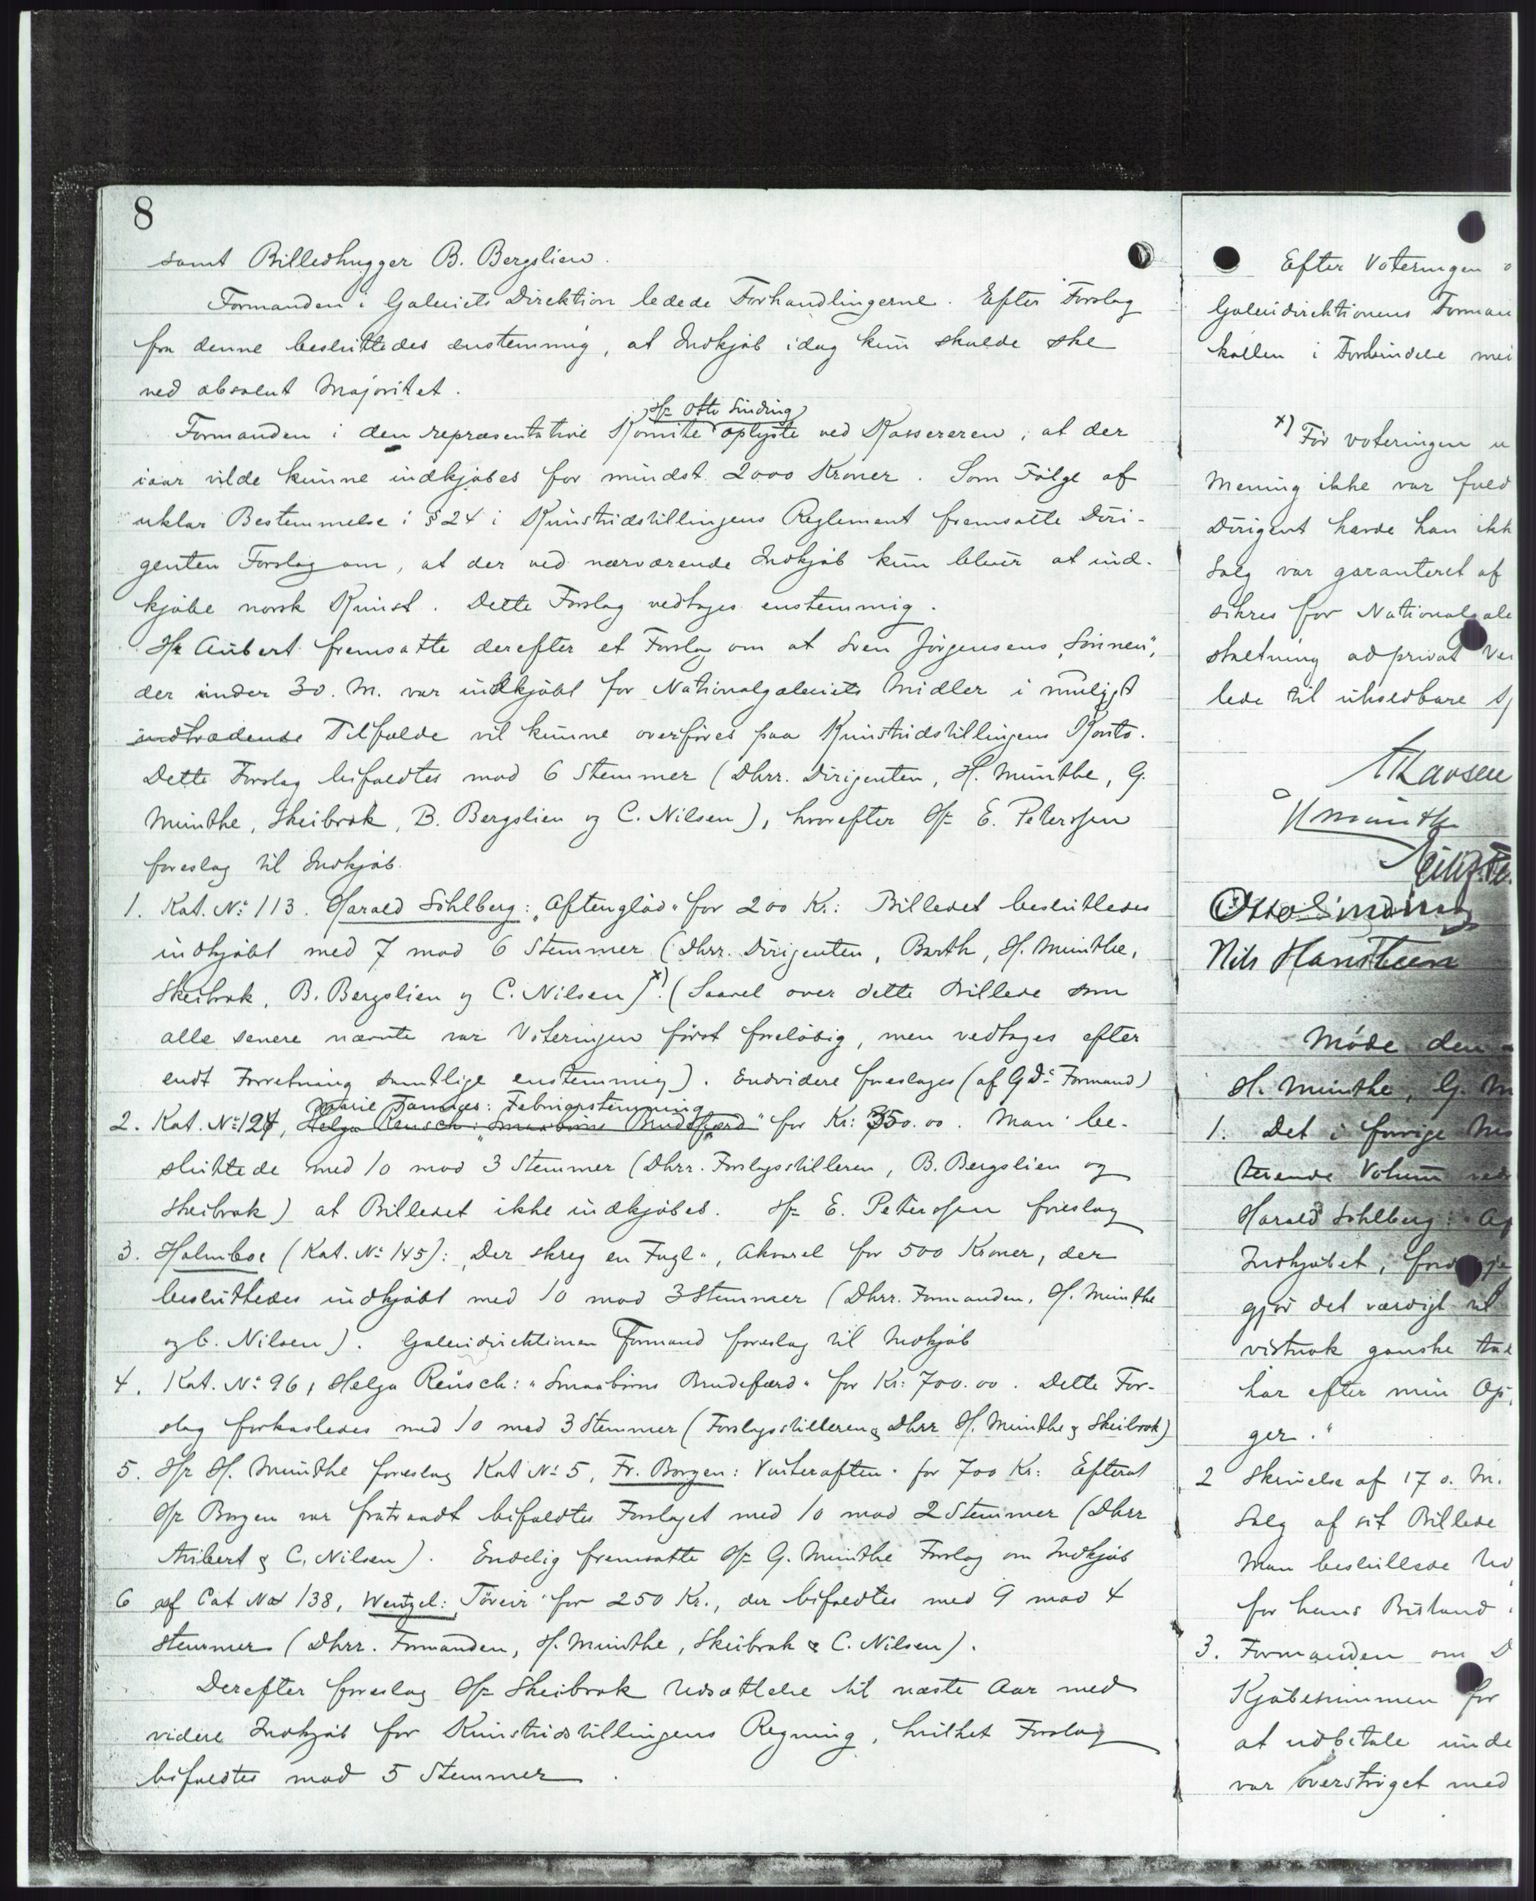 8
samt Billedhugger B. Bergslien.
Formanden i Galeriets Direktion ledede Forhandlingerne. Efter Forslag
fra denne besluttedes enstemmig, at Indkjøb idag kun skulde ske
ved absolut Majoritet.
Hr Otto Sinding
Formanden i den repræsentative Komite oplyste ved Kassereren, at der
iaar vilde kunne indkjøbes for mindst 2000 Kroner. Som Følge af
uklar Bestemmelse i § 24 i Kunstudstillingens Reglement fremsatte Diri-
genten Forslag om, at der ved nærværende Indkjøb kun bliver at ind-
kjøbe norsk Kunst. Dette Forslag vedtages enstemmig.
Hr Aubert fremsatte derefter et Forslag om at Sven Jørgensens „Sønnen",
der under 30. M. var indkjøbt for Nationalgaleriets Midler i muligt
indtrædende Tilfælde vil kunne overføres paa Kunstudstillingens Konto.
Dette Forslag bifaldtes mod 6 Stemmer (Dhrr. Dirigenten, H. Munthe, G.
Munthe, Skeibrok, B. Bergslien og C. Nilsen), hvorefter Hr E. Peterssen
foreslog til Indkjøb.
1. Kat. No 113. Harald Sohlberg: „Aftenglød" for 200 Kr: Billedet besluttedes
indkjøbt med 7 mod 6 Stemmer (Dhrr. Dirigenten, Barth, H. Munthe,
Skeibrok, B. Bergslien og C. Nilsen) x). (Saavel over dette Billede som
alle senere nævnte var Voteringen først foreløbig, men vedtages efter
endt Forretning samtlige enstemmig). Endvidere foreslages (af G D: Formand)
Marie Tannæs: Februarstemning
2. Kat. No 124, Helga Reusch: „Smaabørns Brudefærd" for Kr: 350.00. Man be-
sluttede med 10 mod 3 Stemmer (Dhrr. Forslagsstilleren, B. Bergslien og
Skeibrok) at Billedet ikke indkjøbes. Hr E. Peterssen foreslog
3. Holmboe (Kat. No 145): „Der skreg en Fugl", Akvarel for 500 Kroner, der
besluttedes indkjøbt med 10 mod 3 Stemmer (Dhrr. Formanden, H. Munthe
og C. Nilsen). Galeridirektionen Formand foreslog til Indkjøb
4. Kat. No 96, Helga Reusch: „Smaabørns Brudefærd" for Kr: 700.00. Dette For-
slag forkastedes med 10 mod 3 Stemmer (Forslagsstilleren & Dhrr H. Munthe & Skeibrok)
5. Hr H. Munthe foreslog Kat No 5, Fr. Borgen: Vinteraften for 700 Kr: Efterat
Hr Borgen var fratraadt bifaldtes Forslaget med 10 mod 2 Stemmer (Dhrr
Aubert & C. Nilsen). Endelig fremsatte Hr G. Munthe Forslag om Indkjøb
6 af Cat No 138, Wentzel: „Tøveir" for 250 Kr., der bifaldtes med 9 mod 4
Stemmer (Dhrr. Formanden, H. Munthe, Skeibrok & C. Nilsen).
Derefter foreslog Hr Skeibrok Udsættelse til næste Aar med
videre Indkjøb for Kunstudstillingens Regning, hvilket Forslag
bifaldtes mod 5 Stemmer.
Efter Voteringen
Galeridirektionens Forman
kollen i Forbindelse
x) Før voteringen
Mening ikke var fuld
Dirigent havde han ikk
Salg var garanteret af
sikres for Nationalgale
staltning ad privat
lede til uheldbare
Larsen
H Munthe
Otto Sinding
Nils Hansteen
Møde den
H. Munthe, G. M
1. Det i forrige
terende Votum
Harald Sohlberg:
Indkjøbet,
gjør det værdigt til
vistnok ganske
har efter min Op
ger."
2 Skrivelse af 17 o. M.
Salg af sit Billede
Man besluttede
for hans Bistand
3. Formanden om
Kjøbesummen for
at udbetale unde
var overstrøget med